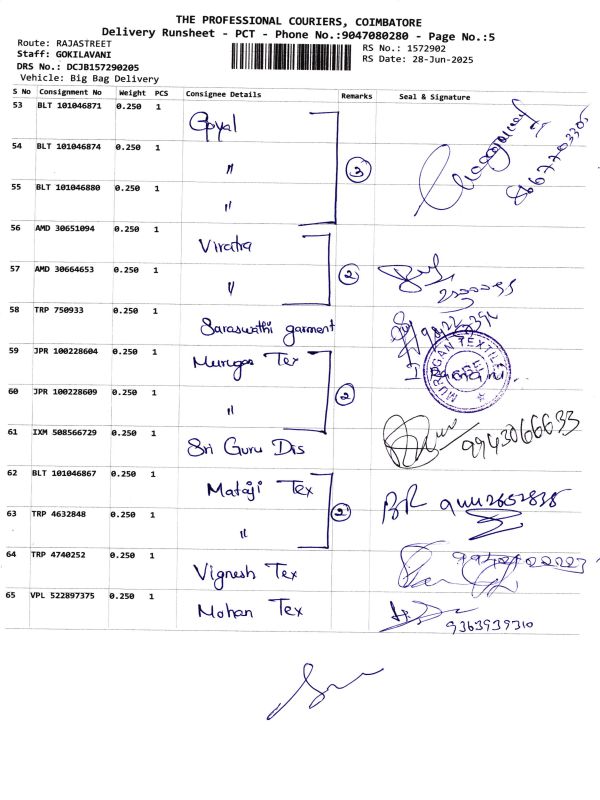 THE PROFESSIONAL COURIERS, COIMBATORE
Delivery Runsheet - PCT - Phone No.:9047080280 - Page No.:5
Route: RAJASTREET
RS No.: 1572902
Staff: GOKILAVANI
RS Date: 28-Jun-2025
DRS No.: DCJB157290205
Vehicle: Big Bag Delivery
S No Consignment No Weight PCS Consignee Details Remarks Seal & Signature
53 BLT 101046871 0.250 1 Goyal
54 BLT 101046874 0.250 1 " 3
55 BLT 101046880 0.250 1 "
56 AMD 30651094 0.250 1 Viratra
57 AMD 30664653 0.250 1 " 2
58 TRP 750933 0.250 1 Saraswathi garment
59 JPR 100228604 0.250 1 Murugan Tex
MURUGAN TEXTILE
60 JPR 100228609 0.250 1 " 2
61 IXM 508566729 0.250 1 Sri Guru Dis 9943066633
62 BLT 101046867 0.250 1 Mataji Tex
63 TRP 4632848 0.250 1 " 2
64 TRP 4740252 0.250 1 Vignesh Tex
65 VPL 522897375 0.250 1 Mohan Tex
9363939310